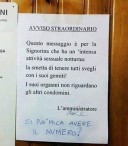 AVVISO STRAORDINARIO
Questo messaggio è per la
Signorina che ha un'intensa
attività sessuale notturna:
la smetta di tenere tutti svegli
con i suoi gemiti!
I suoi orgasmi non riguardano
gli altri condomini.
L'amministratore
SI PUÒ MICA AVERE
IL NUMERO?